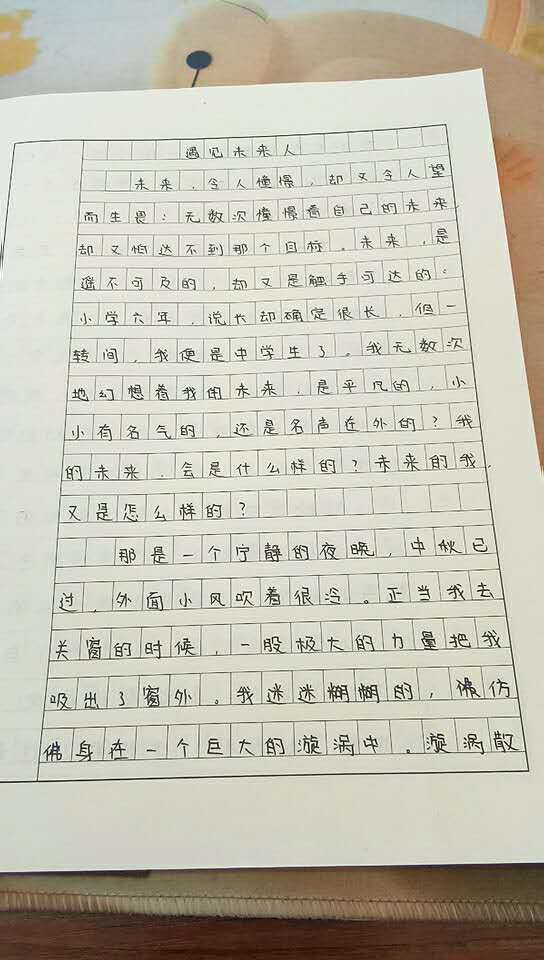 遇见未来人
未来，令人憧憬，却又令人望
而生畏：无数次憧憬着自己的未来，
却又怕达不到那个目标。未来，是
遥不可及的，却又是触手可达的：
小学六年，说长却确定很长，但一
转间，我便是中学生了。我无数次
地幻想着我的未来，是平凡的，小
小有名气的，还是名声在外的？我
的未来，会是什么样的？未来的我，
又是怎么样的？
那是一个宁静的夜晚，中秋已
过，外面小风吹着很冷。正当我去
关窗的时候，一股极大的力量把我
吸出了窗外。我迷迷糊糊的，仿
佛身在一个巨大的漩涡中。漩涡散